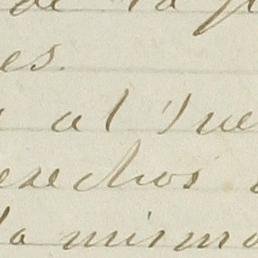 de la
es.
al Jue
erechos
la misma